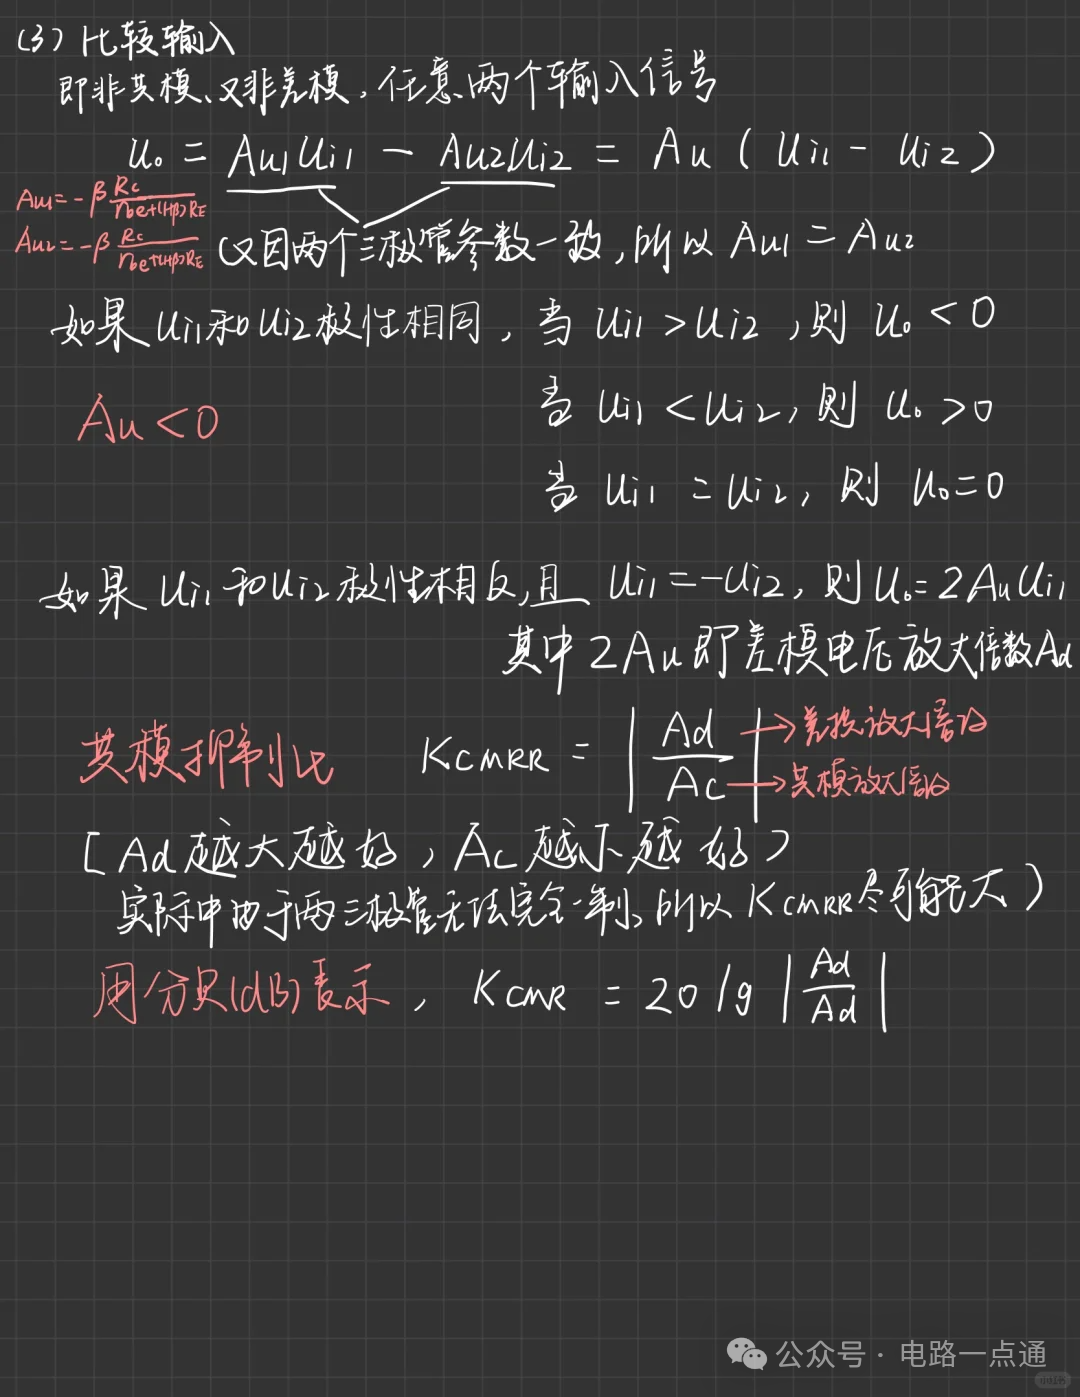 (3) 比较输入
即非共模、又非差模，任意两个输入信号
u₀ = Au1Ui1 - Au2Ui2 = Au ( Ui1 - Ui2 )
Au1=-β Rc/rbe+(1+β)RE
Au2=-β Rc/rbe+(1+β)RE
(又因两个三极管参数一致,所以 Au1 = Au2
如果 Ui1和Ui2极性相同, 当 Ui1 > Ui2 ,则 U₀ < 0
Au<0
当 Ui1 < Ui2, 则 U₀ >0
当 Ui1 = Ui2, 则 U₀=0
如果 Ui1和Ui2极性相反,且 Ui1=-Ui2, 则 U₀=2AuUi1
其中 2Au即差模电压放大倍数Ad
共模抑制比 KCMRR = |Ad/Ac|
→差模放大倍数
→共模放大倍数
[Ad越大越好, Ac越小越好)
实际中由于两三极管无法完全一致, 所以 KCMRR尽可能大)
用分贝(dB)表示, KCMR = 20 lg |Ad/Ad|
公众号·电路一点通
小红书